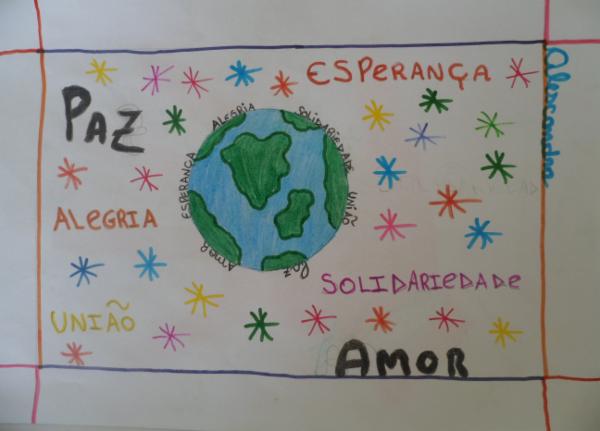 ESPERANÇA
PAZ
Alexandra
ALEGRIA
SOLIDARIEDADE
UNIÃO
PAZ
AMOR
ESPERANÇA
ALEGRIA
SOLIDARIEDADE
UNIÃO
AMOR